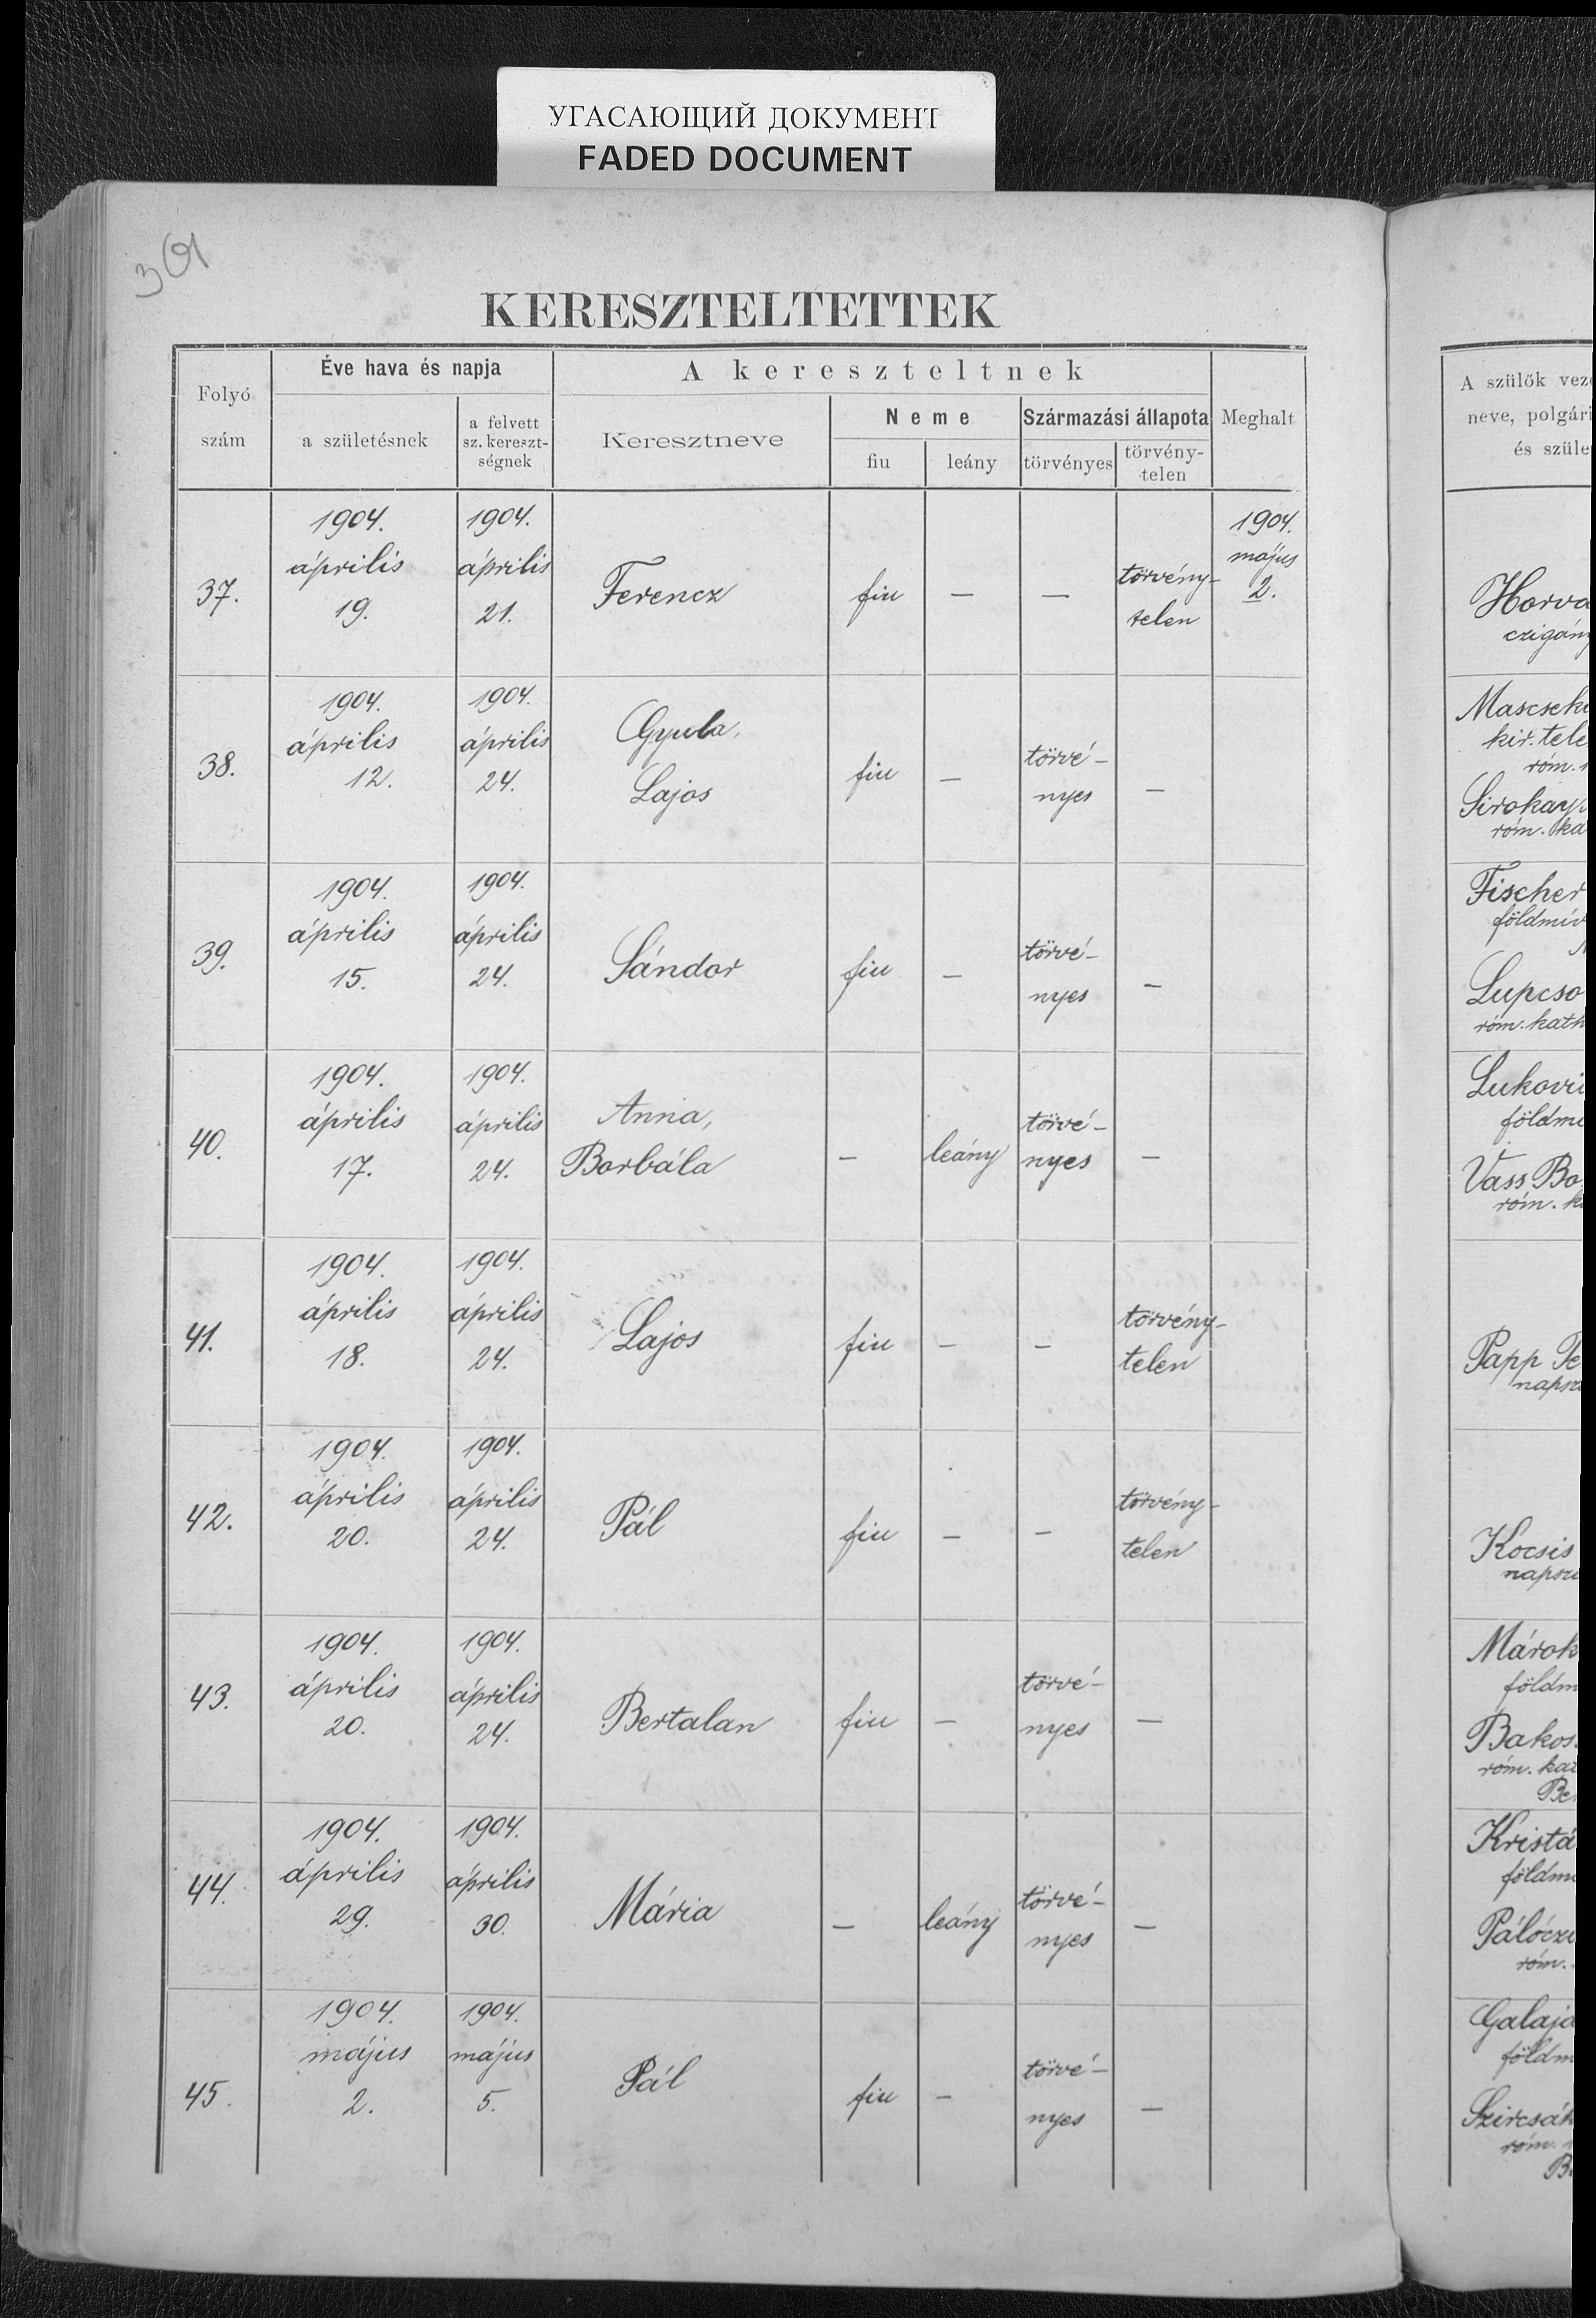 УГАСАЮЩИЙ ДОКУМЕНТ
FADED DOCUMENT
KERESZTELTETTEK
Folyó szám
Éve hava és napja
a születésnek
a felvett sz. kereszt-ségnek
A kereszteltnek
Keresztneve
Neme
fiu
leány
Származási állapota
törvényes
törvény-telen
Meghalt
37.
1904. április 19.
1904. április 21.
Ferencz
fiu
—
—
törvény-telen
1904. május 2.
38.
1904. április 12.
1904. április 24.
Gyula, Lajos
fiu
—
törvé-nyes
—
39.
1904. április 15.
1904. április 24.
Sándor
fiu
—
törvé-nyes
—
40.
1904. április 17.
1904. április 24.
Anna, Borbála
—
leány
törvé-nyes
—
41.
1904. április 18.
1904. április 24.
Lajos
fiu
—
—
törvény-telen
42.
1904. április 20.
1904. április 24.
Pál
fiu
—
—
törvény-telen
43.
1904. április 20.
1904. április 24.
Bertalan
fiu
—
törvé-nyes
—
44.
1904. április 29.
1904. április 30.
Mária
—
leány
törvé-nyes
—
45.
1904. május 2.
1904. május 5.
Pál
fiu
—
törvé-nyes
—
A szülők vez
neve, polgári
és szüle
Horvá
czigány
Mascsek
kir. tele
róm.
Sirokay
róm. ka
Fischer
földmiv
Lupcso
róm. kath
Lukovi
földmi
Vass Bo
róm. k
Papp Te
napsz
Kocsis
napsz
Márok
földm
Bakos
róm. kat
Be
Kristá
földmi
Pálócz
róm.
Galajd
földm
Szircsák
róm.
B